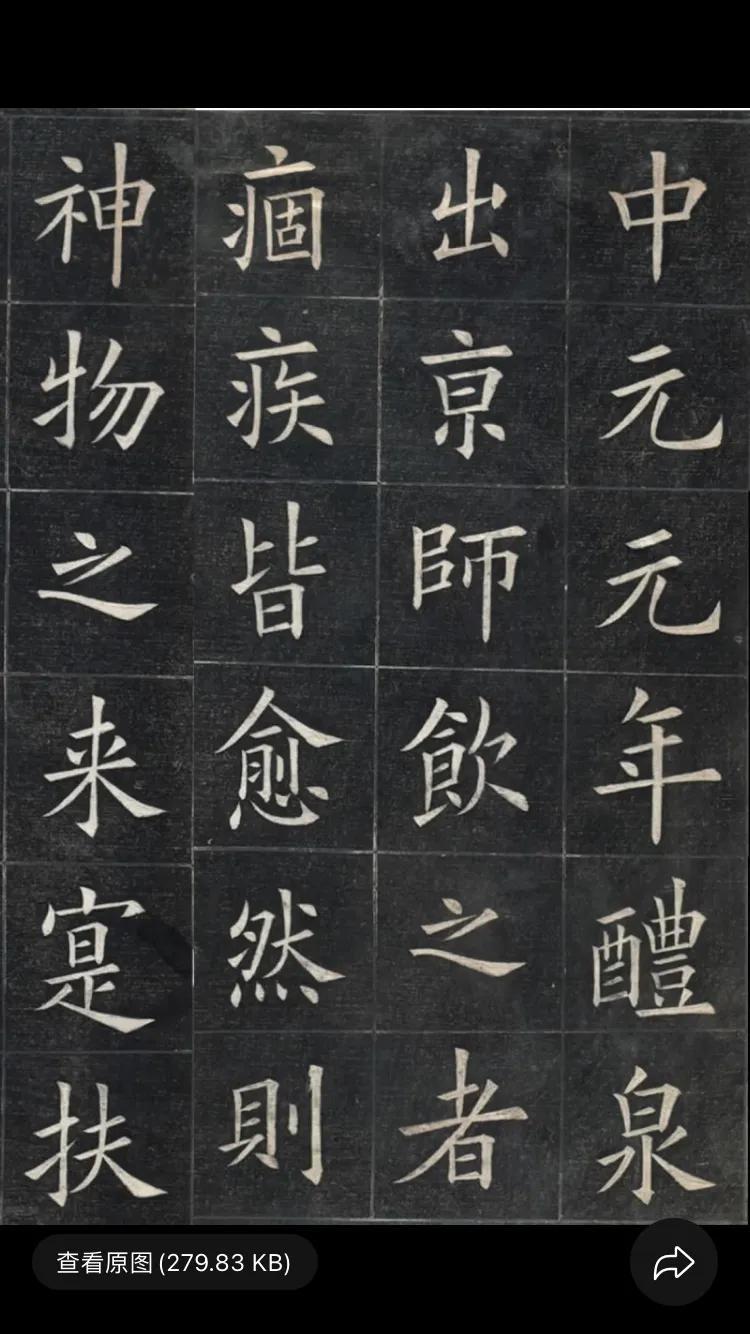 中元元年醴泉
出亰師飲之者
痼疾皆愈然則
神物之来寔扶
查看原图 (279.83 KB)